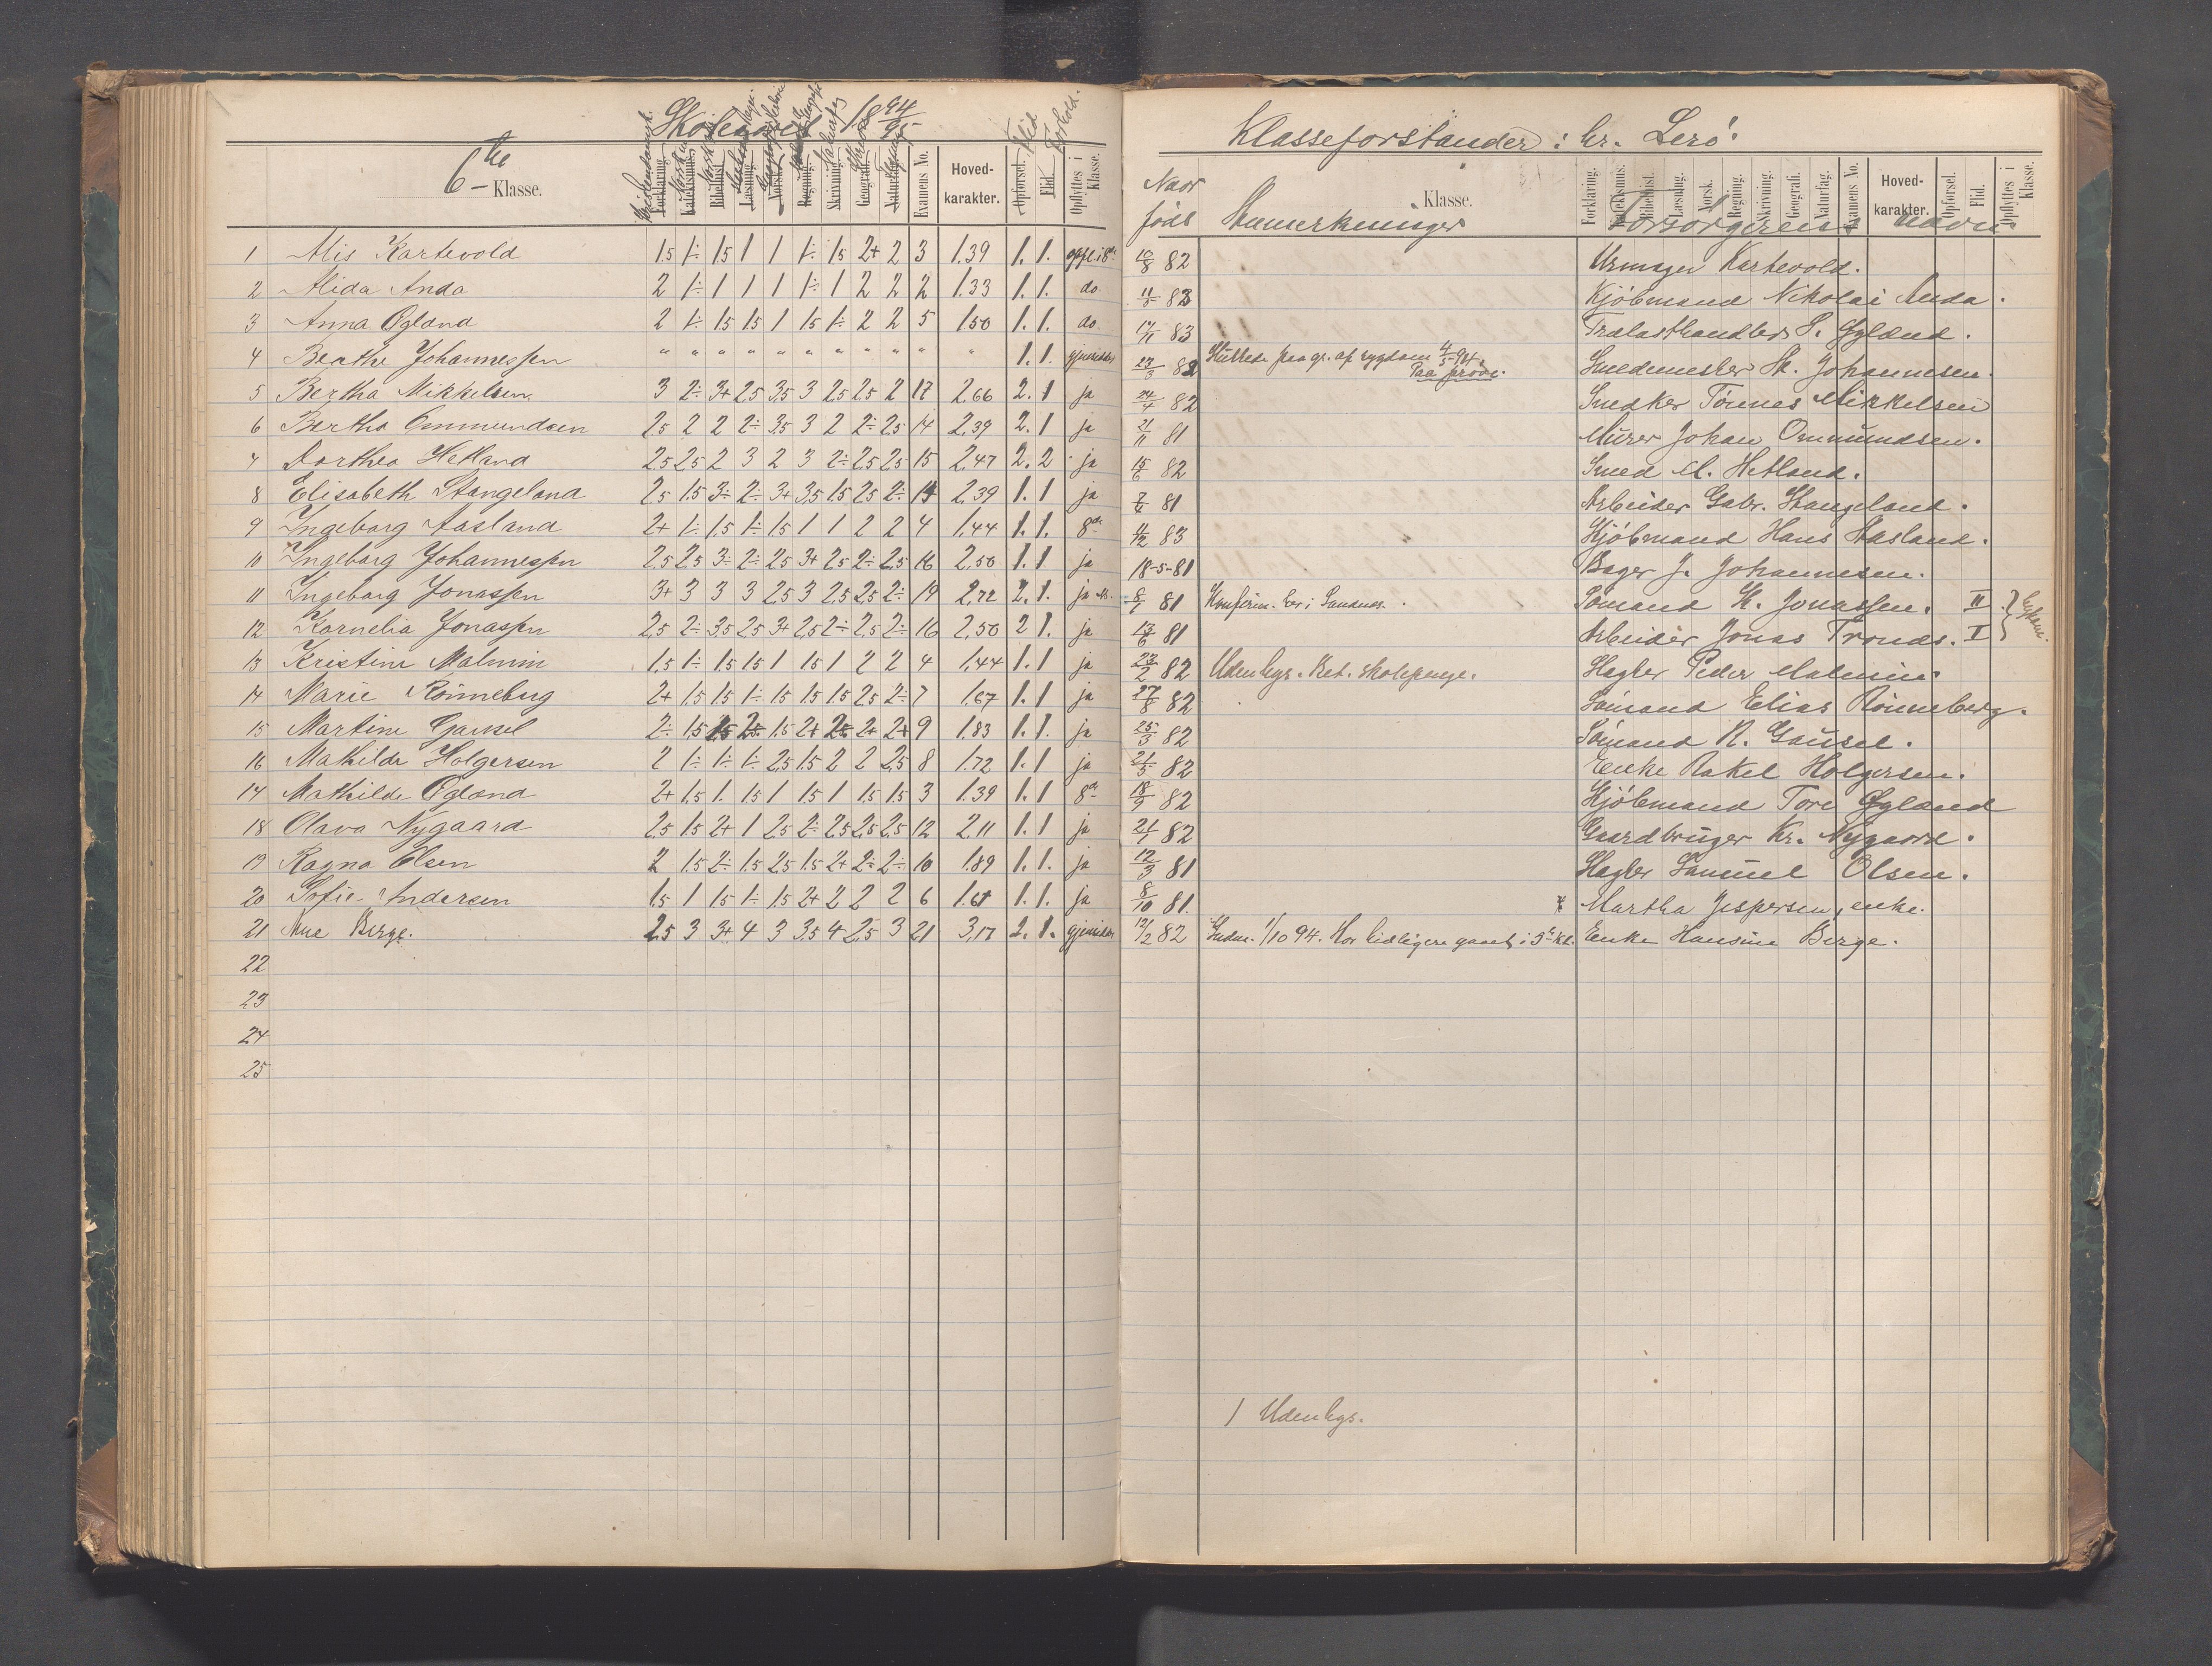 Skoleaaret 18 94/95
6te Klasse.
Forklaring. Katekismus. Bibelhist. Læsning. Norsk. Regning. Skrivning. Geografi. Naturfag. Examens No. Hovedkarakter. Opførsel. Flid. Opflyttes i Klasse.
Flid Forhold.
1 Alis Kartevold 1,5 1÷ 1,5 1 1 1÷ 1,5 2+ 2 3 1.39 1. 1. opfl. i 8de
2 Alida Anda 2 1÷ 1 1 1 1÷ 1 2 2 2 1.33 1. 1. do
3 Anna Øgland 2 1÷ 1,5 1,5 1 1,5 1÷ 2 2 5 1.50 1. 1. do
4 Beathe Johannessen " " " " " " " " " " " 1. 1. gjensidder
5 Bertha Mikkelsen. 3 2÷ 3+ 2,5 3,5 3 2,5 2,5 2 17 2,66 2. 1 ja
6 Bertha Ommundsen 2,5 2 2 2÷ 3,5 3 2 2÷ 2,5 14 2,39 2. 1 ja
7 Dorthea Hetland 2,5 2,5 2 3 2 3 2÷ 2,5 2,5 15 2,47 2. 2 ja
8 Elisabeth Stangeland 2,5 1,5 3÷ 2÷ 3+ 3,5 1,5 2,5 2÷ 14 2,39 1. 1 ja
9 Ingeborg Aasland 2+ 1÷ 1,5 1÷ 1,5 1 1 2 2 4 1,44 1. 1. 8de
10 Ingeborg Johannessen 2,5 2,5 3÷ 2÷ 2,5 3+ 2,5 2÷ 2,5 16 2,50 1. 1 ja
11 Ingeborg Jonassen 3+ 3 3 3 2,5 3 2,5 2,5 2÷ 19 2,72 2. 1. ja
12 Kornelia Jonassen 2,5 2÷ 3,5 2,5 3+ 2,5 2÷ 2,5 2÷ 16 2,50 2 1. ja
13 Kristine Malmin 1,5 1÷ 1,5 1,5 1 1,5 1 2 2 4 1,44 1. 1 ja
14 Marie Rönneberg 2+ 1,5 1,5 1÷ 1,5 1,5 1,5 2,5 2÷ 7 1,67 1. 1 ja
15 Martine Gausel 2÷ 1,5 1,5 2÷ 1,5 2+ 2÷ 2+ 2+ 9 1.83 1. 1. ja
16 Mathilde Holgersen 2 1÷ 1÷ 1÷ 2,5 1,5 2 2 2,5 8 1.72 1. 1 ja
17 Mathilde Øgland 2+ 1,5 1. 1,5 1 1,5 1 1,5 1,5 3 1.39 1. 1 8de
18 Olava Nygaard 2,5 1,5 2+ 1 2,5 2÷ 2,5 2,5 2,5 12 2,11 1. 1 ja
19 Ragna Olsen 2 1,5 2÷ 1,5 2,5 1,5 2+ 2÷ 2÷ 10 1.89 1. 1. ja
20 Sofie Andersen 1,5 1 1,5 1÷ 1,5 2+ 2 2 2 6 1.61 1. 1. ja
21 Ane Berge. 2,5 3 3+ 4 3 3,5 4 2,5 3 21 3,17 2. 1. gjensidder
22
23
24
25
Klasseforstander: hr. Lerø.
Naar født
Anmerkninger Klasse.
Forklaring. Katekismus. Bibelhist. Læsning. Norsk. Regning. Skrivning. Geografi. Naturfag. Examens No. Hovedkarakter. Opførsel. Flid. Opflyttes i Klasse.
Forsørgerens navn
10/8 82 Urmager Kartevold.
11/8 83 Kjøbmand Nikolai Anda.
17/1 83 Trælasthandler S. Øgland.
23/3 82 Sluttede paa gr. af sygdom 4/5 94. Paa prøve. Smedemester H. Johannesen.
24/4 82 Snedker Tönnes Mikkelsen
21/11 81 Murer Johan Ommundsen.
15/6 82 Smed M. Hetland.
7/6 81 Arbeider Gabr. Stangeland.
11/12 83 Kjøbmand Hans Aasland.
18-5-81 Bager J. Johannesen.
8/1 81 Konfirm. bor i Sandnes. Sømand K. Jonassen. II
13/6 81 Arbeider Jonas Tronds. I
23/2 82 Udenbys. Bet. skolepenge. Hagler Peder Malmin.
27/8 82 Sømand Elias Rönneberg.
25/3 82 Sømand R. Gausel.
21/5 82 Enke Rakel Holgersen.
18/9 82 Kjøbmand Tore Øgland
21/1 82 Gaardbruger Kr. Nygaard.
12/3 81 Hagler Samuel Olsen.
8/10 81. Martha Jespersen, enke.
12/2 82 Indm. 1/10 94. Har tidligere gaaet i 5te Kl. Enke Hansine Berge.
1 Udenbys.